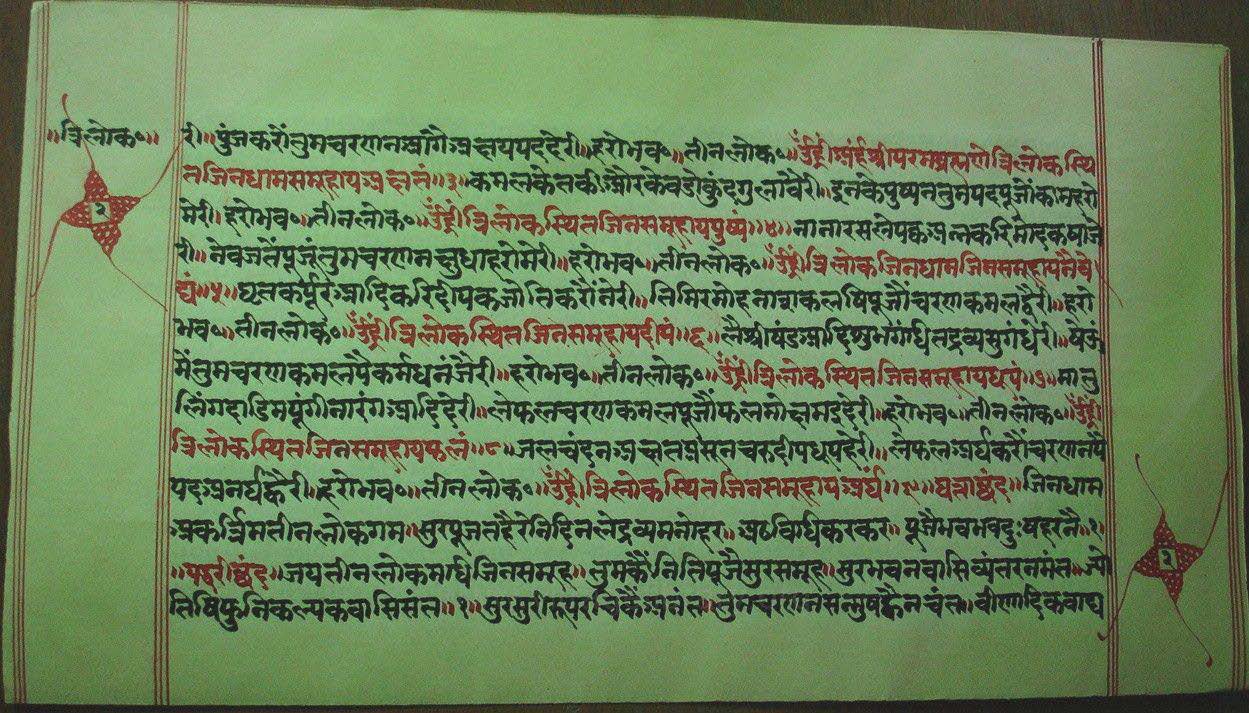 ॥त्रिलोक॰॥ री॥पुंजकरौंतुमचरणनआगैअक्षयपददेरी॥हरोभव॰॥तीनलोक॰॥ॐह्रींअर्हंश्रीपरमब्रह्मणेत्रिलोकस्थि
तजिनधामसमूहायअक्षतं॥३॥कमलकेतकीऔरकेवडोकुंदगुलावैरी॥इनकेपुष्पनतुमपदपूजौंकामहरो
मेरी॥हरोभव॰॥तीनलोक॰॥ॐह्रींत्रिलोकस्थितजिनसमूहायपुष्पं॥४॥नानारसलेपक्वअन्नकरिमोदकषाजे
री॥नेवजलैंपूजूंतुमचरणनक्षुधाहरोमेरी॥हरोभव॰॥तीनलोक॰॥ॐह्रींत्रिलोकजिनधामजिनसमूहायनैवे
द्यं॥५॥घृतकर्पूरआदिकरिदीपकजोतिकरौंनेरी॥तिमिरमोहनाशकलषिपूजौंचरणकमलद्वैरी॥हरो
भव॰॥तीनलोक॰॥ॐह्रींत्रिलोकस्थितजिनसमूहायदीपं॥६॥लैश्रीषंडआदिशुभगंधितद्रव्यसुगंधेरी॥षेऊं
मैंतुमचरणकमलपैकर्मधनंजैरी॥हरोभव॰॥तीनलोक॰॥ॐह्रींत्रिलोकस्थितजिनसमूहायधूपं॥७॥मातु
लिंगदाडिमपूंगीनारंगआदिदेरी॥लेफलचरणकमलपूजौंफलमोक्षमददेरी॥हरोभव॰॥तीनलोक॰॥ॐह्रीं
त्रिलोकस्थितजिनसमूहायफलं॥८॥जलचंदनअक्षतप्रसूनचरुदीपधूपदेरी॥लेफलअर्घकरौंचरणनपै
पदअनर्घह्वैरी॥हरोभव॰॥तीनलोक॰॥ॐह्रींत्रिलोकस्थितजिनसमूहायअर्घं॥९॥घत्ताछंद॥जिनधाम
अकर्त्रिमतीनलोकगम॥सुरपूजतहैरेनिदिनलेद्रव्यमनोहर॥अष्टविधिकरकर॥पूजौभवभवदुःषहरनै॥१॥
॥पद्धरीछंद॥जयतीनलोकमाधिजिनसमूह॥तुमकौंनितिपूजैसुरसमूह॥सुरभवनवासिव्यंतरनमंत॥ज्यो
तिषिफुनिकल्पकवासिसंत॥१॥सुरसुरीनृत्परचिकैंअनंत॥तुमचरणनसन्मुषह्वैनचंत॥वीणादिकवाद्य
२
२